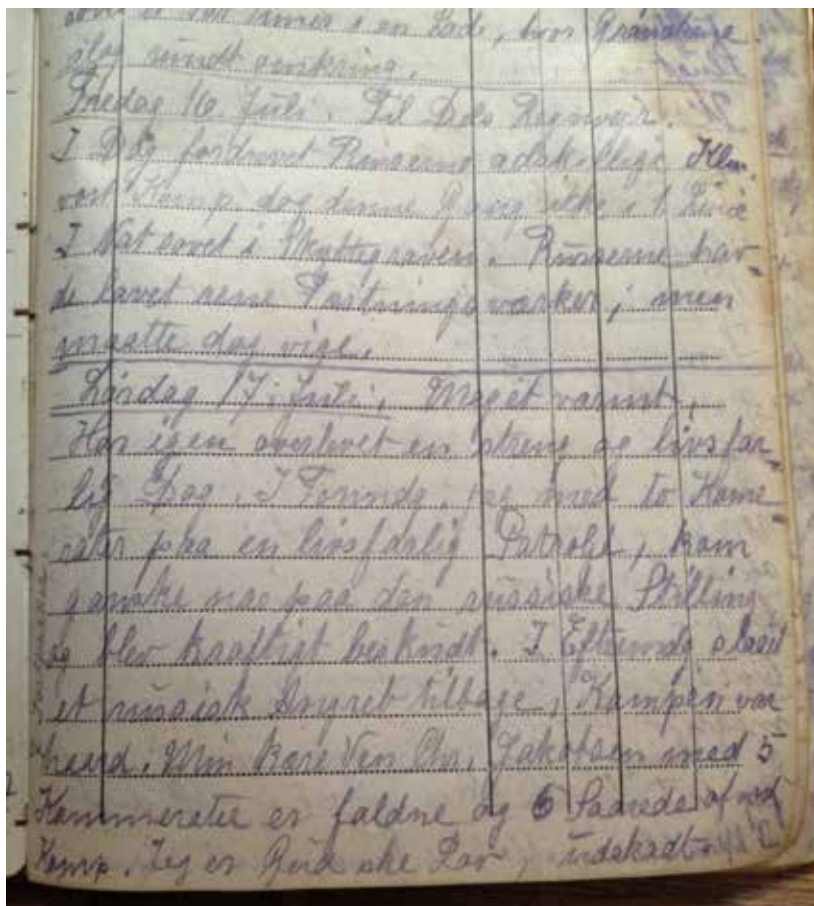 Timer i en Lade, hvor Granaterne
slog rundt omkring.
Fredag 16. Juli. Til Dels Regnvejr.
I Dag fordrevet Russerne adskillige Klm.
vort Komp. dog denne Gang ikke i 1. Linie
I Nat sovet i Skyttegraven. Russerne hav-
de lavet rene Fæstningsværker; men
maatte dog vige.
Lørdag 17. Juli. Meget varmt.
Har igen overlevet en streng og livsfar-
lig Dag. I Formdg. jeg med to Kame
rater paa en livsfarlig Patrolje, kom
ganske nær paa den russiske Stilling
og blev kraftigt beskudt. I Eftermdg slaaet
et russisk Angreb tilbage, Kampen var
haard. Min kære Ven Chr. Jakobsen med 5
Kammerater er faldne og 6 Saarede af vort
Komp. Jeg er Gud ske Lov, uskadt.